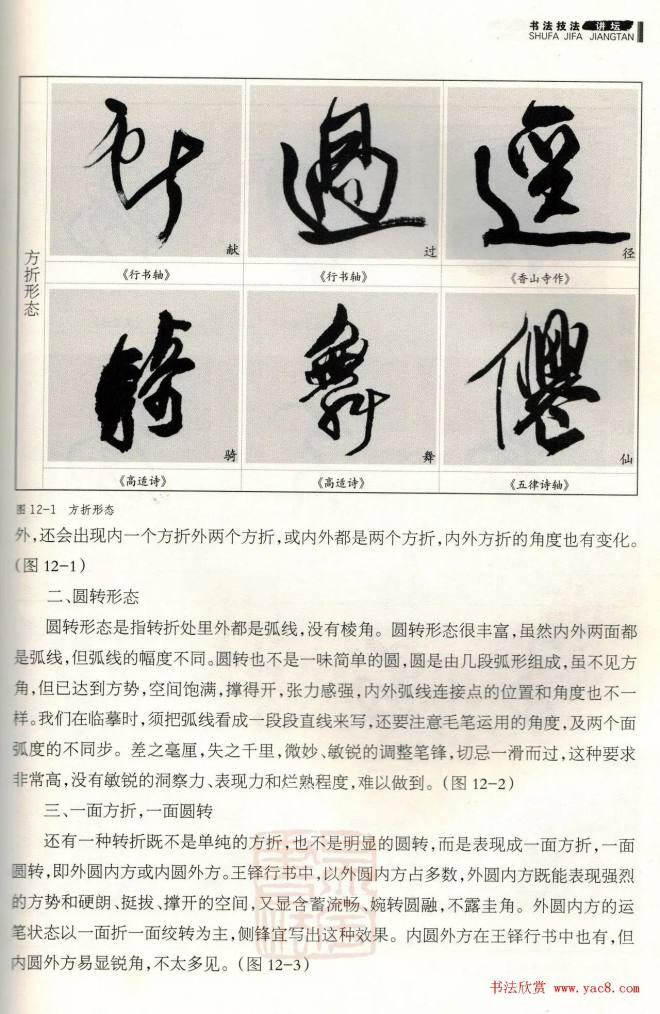 书法技法 讲坛
SHUFA JIFA JIANGTAN
方折形态
献
过
径
《行书轴》
《行书轴》
《香山寺作》
骑
舞
仙
《高适诗》
《高适诗》
《五律诗轴》
图 12-1 方折形态
外,还会出现内一个方折外两个方折,或内外都是两个方折,内外方折的角度也有变化。
(图 12-1)
二、圆转形态
圆转形态是指转折处里外都是弧线,没有棱角。圆转形态很丰富,虽然内外两面都
是弧线,但弧线的幅度不同。圆转也不是一味简单的圆,圆是由几段弧形组成,虽不见方
角,但已达到方势,空间饱满,撑得开,张力感强,内外弧线连接点的位置和角度也不一
样。我们在临摹时,须把弧线看成一段段直线来写,还要注意毛笔运用的角度,及两个面
弧度的不同步。差之毫厘,失之千里,微妙、敏锐的调整笔锋,切忌一滑而过,这种要求
非常高,没有敏锐的洞察力、表现力和烂熟程度,难以做到。(图 12-2)
三、一面方折,一面圆转
还有一种转折既不是单纯的方折,也不是明显的圆转,而是表现成一面方折,一面
圆转,即外圆内方或内圆外方。王铎行书中,以外圆内方占多数,外圆内方既能表现强烈
的方势和硬朗、挺拔、撑开的空间,又显含蓄流畅、婉转圆融,不露圭角。外圆内方的运
笔状态以一面折一面绞转为主,侧锋宜写出这种效果。内圆外方在王铎行书中也有,但
内圆外方易显锐角,不太多见。(图 12-3)
书法欣赏 www.yac8.com